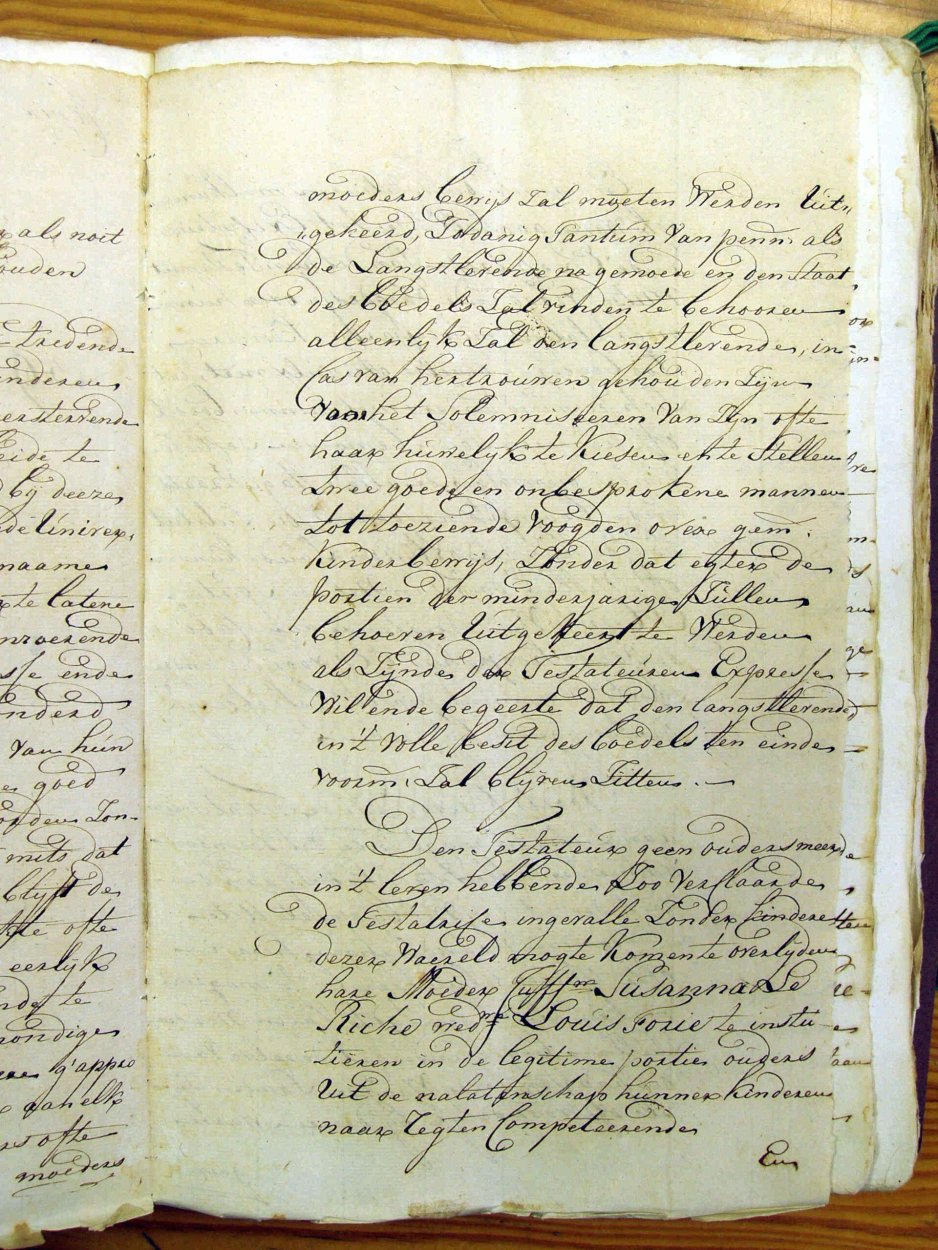 als noit
ouden
tredende
anderen
eersterrende
eide te
bij deeze
naame
te latene
ende
Van hun
goed
mits dat
blijft de
ofte
eerlijk
te
ofte
moeders
moeders bewijs Zal moeten Werden Uit„
„gekeerd, Zodanig Santum Van penn: als
de Langstlevende na gemoede en den Staat
des boedels Zal vinden te behooren
alleenlijk Zal den langstlevende, in
Cas van hertrouwen gehouden Zijn
Voor het Solemniseren Van Zijn ofte
haar huwelijk te Kiesen en te Stellen
twee goede en onbesprokene mannen
tot toeziende Voogden over gem:
Kinder bewijs, Zonder dat egter de
portien der minderjarige Zullen
behoeven Uitgekeert te Werden
als Zijnde der Testateuren Expresse
Wil ende begeerte dat den langstlevende
in't Volle besit des boedels ten einde
voorm: Zal blijven Zitten. —
Den Testateur geen ouders meer
in't leven hebbende Zoo Verklaarde
de Testatrise ingevalle Zonder kindere
dezer Waereld mogte Komen te overlijden
hare Moeder Juffrw Susanna Le
Riche wedwe Louis Forie te institu-
tiëren in de legitime portie ouders
Uit de nalatenschap hunner kinderen
naar Regten Competeerende
En